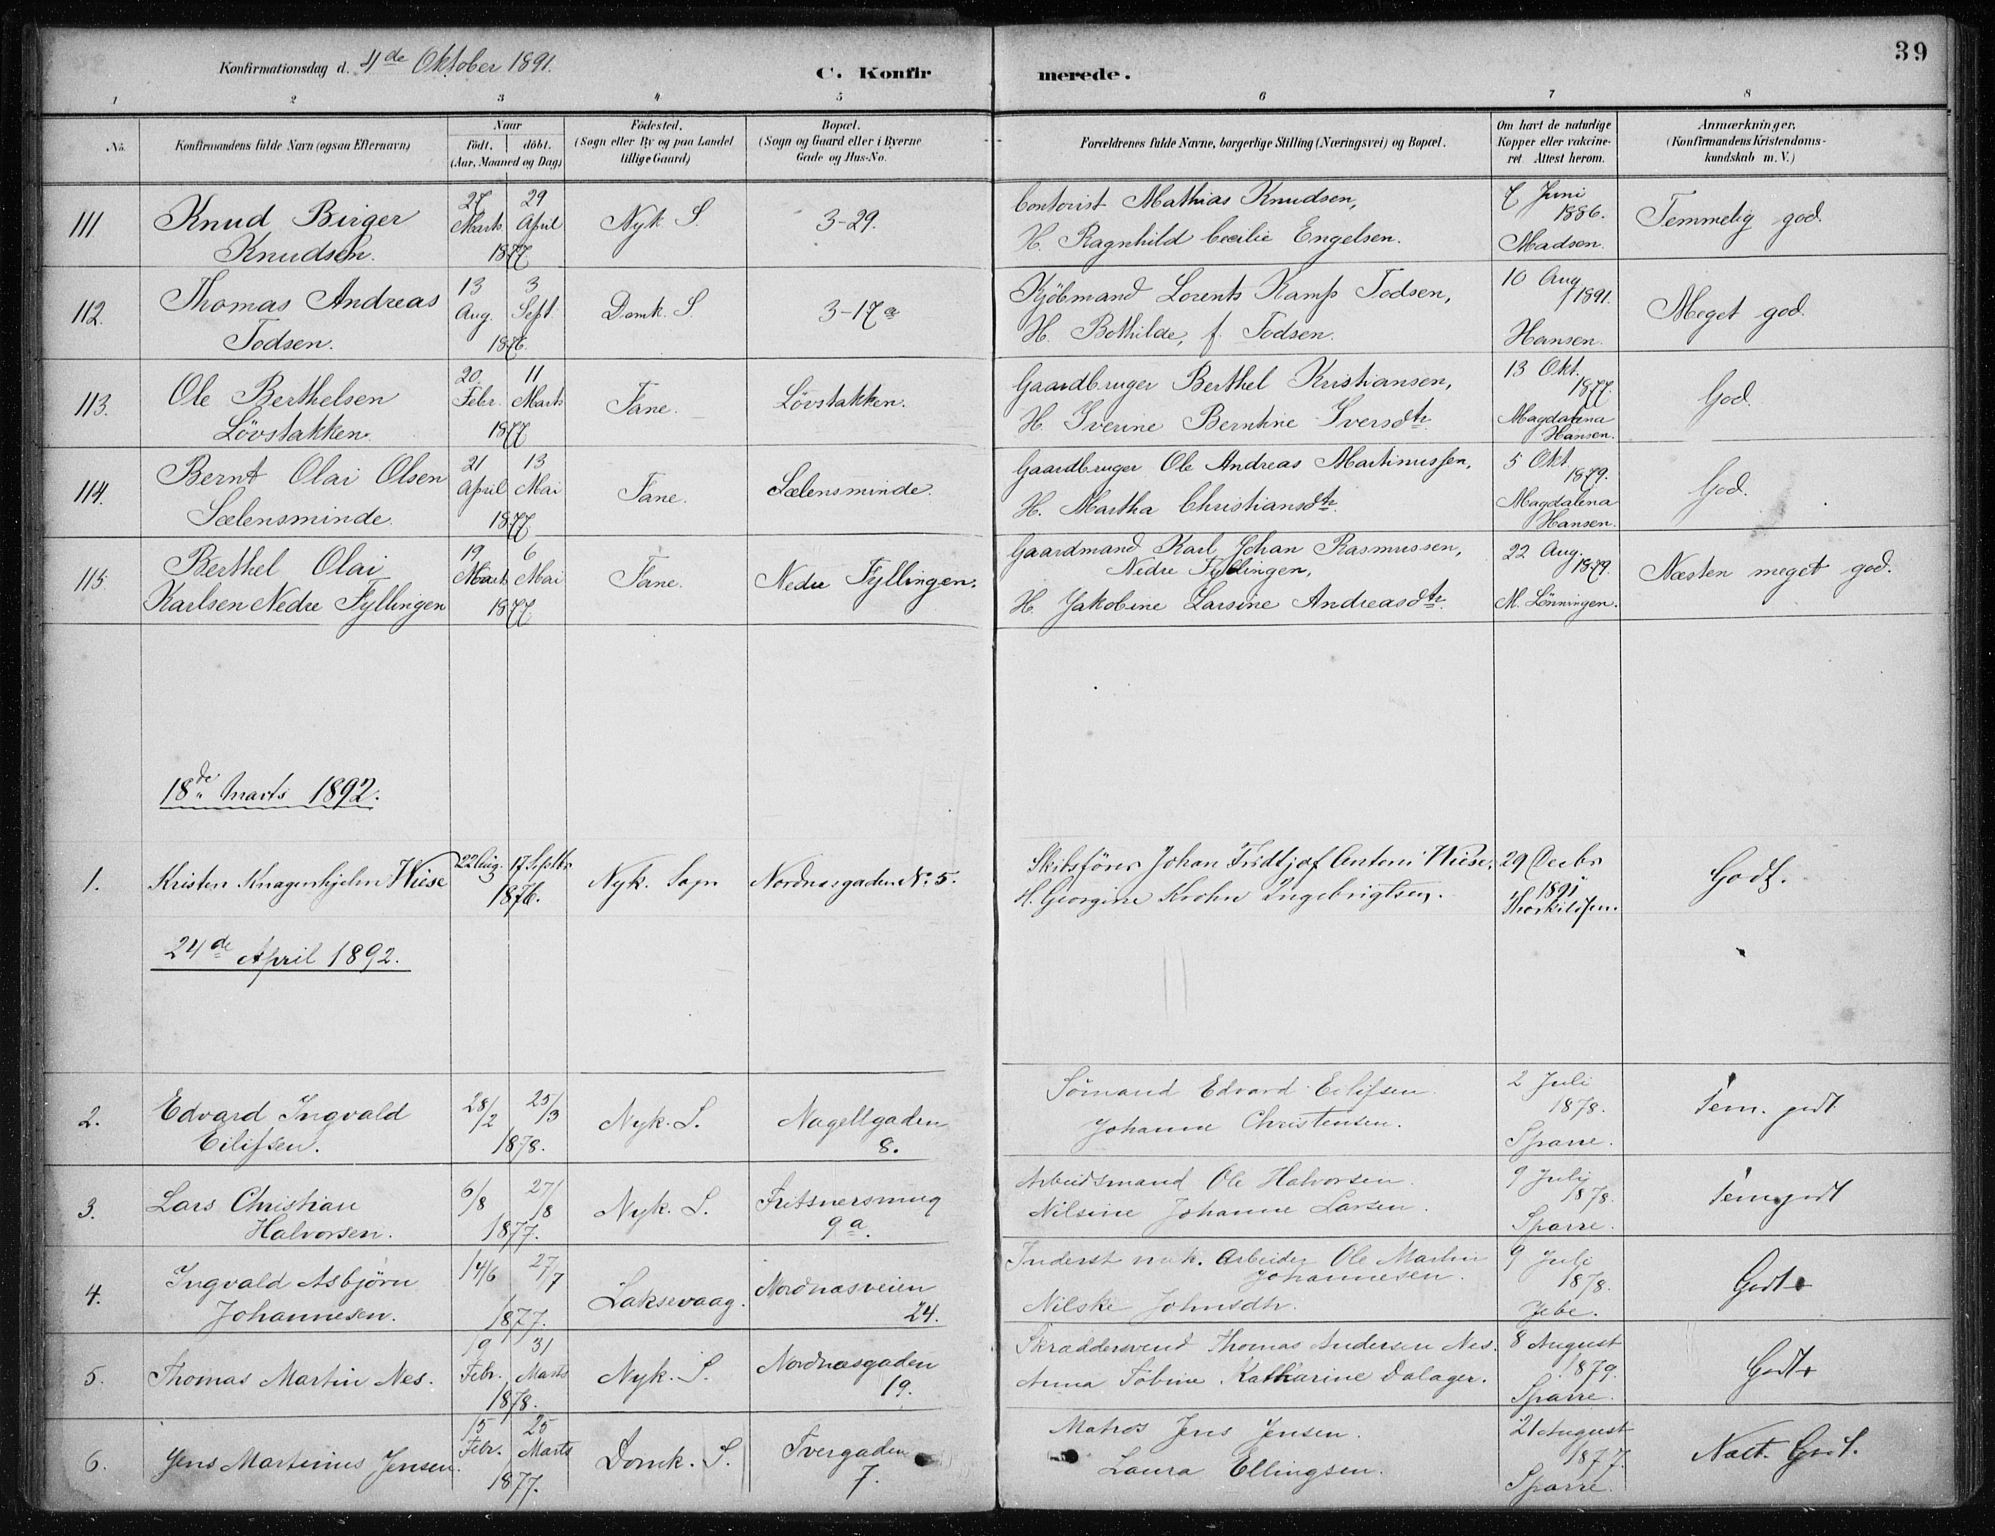 39
Konfirmationsdag d. 4de Oktober 1891.
C. Konfirmerede.
1 2 3 4 5 6 7 8
No. Konfirmandens fulde Navn (ogsaa Efternavn) Naar Födt. döbt. (Aar, Maaned og Dag) Födested. (Sogn eller By og paa Landet tillige Gaard) Bopæl. (Sogn og Gaard eller i Byerne Gade og Hus-No. Forældrenes fulde Navne, borgerlige Stilling (Næringsvei) og Bopæl. Om havt de naturlige Kopper eller vakcineret. Attest herom. Anmærkninger. (Konfirmandens Kristendomskundskab m. V.)
111. Knud Birger Knudsen. 27 Marts 29 April 1877 Nyk. S. 3-29. Contorist Mathias Knudsen, H. Ragnhild Cecilie Engelsen. 7 Juni 1886. Madsen. Temmelig god.
112. Thomas Andreas Todsen. 13 Aug. 3 Sept. 1876. Domk. S. 3-17a Kjöbmand Lorents Kamp Todsen, H. Bothilde, f. Todsen. 10 Aug 1891. Hansen. Meget god.
113. Ole Berthelsen Lövstakken. 20. Febr. 11 Marts 1877 Fane. Lövstakken. Gaardbruger Berthel Kristiansen, H. Iverine Berntine Iversdtr. 13 Okt. 1877. Magdalena Hansen. God.
114. Bernt Olai Olsen Sælensminde. 21 April 13 Mai 1877 Fane. Sælensminde. Gaardbruger Ole Andreas Martinussen, H. Martha Christiansdtr. 5 Okt 1879. Magdalena Hansen. God.
115. Berthel Olai Karlsen Nedre Fyllingen 19 Marts 6 Mai 1877 Fane. Nedre Fyllingen. Gaardmand Karl Johan Rasmussen, Nedre Fyllingen, H. Jakobine Larsine Andreasdtr. 22 Aug. 1879. M. Lönningen. Næsten meget god.
18de Marts 1892.
1. Kristen Knagenhjelm Wiese 22 Aug. 17 Septbr 1876. Nyk. Sogn Nordnæsgaden No. 5. Skibsförer Johan Fridtjof Antoni Wiese, H. Georgine Krohn Ingebrigtsen. 29 Decbr 1891 Thorkildsen. Godt.
24de April 1892.
2. Edvard Ingvald Eilifsen. 28/2 25/3 1878. Nyk. S. Nagellgaden 8. Sömand Edvard Eilifsen. Johanne Christensen. 2 Juli 1878. Sparre. Tem. godt
3. Lars Christian Halvorsen. 6/8 27/8 1877. Nyk. S. 9a. Arbeidsmand Ole Halvorsen. Nilsine Johanne Larsen. 9 July 1878. Sparre. Tem. godt
4. Ingvald Asbjørn Johannesen. 14/6 27/7 1877. Laksevaag. Nordnæsveien 24. Inderst mek. Arbeider Ole Martin Johannesen. Nilske Johnsdtr. 9 Juli 1878. Jebe. Godt
5. Thomas Martin Nes. 19 Febr. 31 Marts 1878. Nyk. S. Nordnæsgaden 19. Skræddersvend Thomas Andersen Nes. Anna Tobine Katharine Dalager. 8 August 1879. Sparre. Godt
6. Jens Martinius Jensen. 15 Febr. 25 Marts 1877. Domk. S. Tvergaden 7. Matros Jens Jensen. Laura Ellingsen. 21 August 1877. Sparre. Godt.